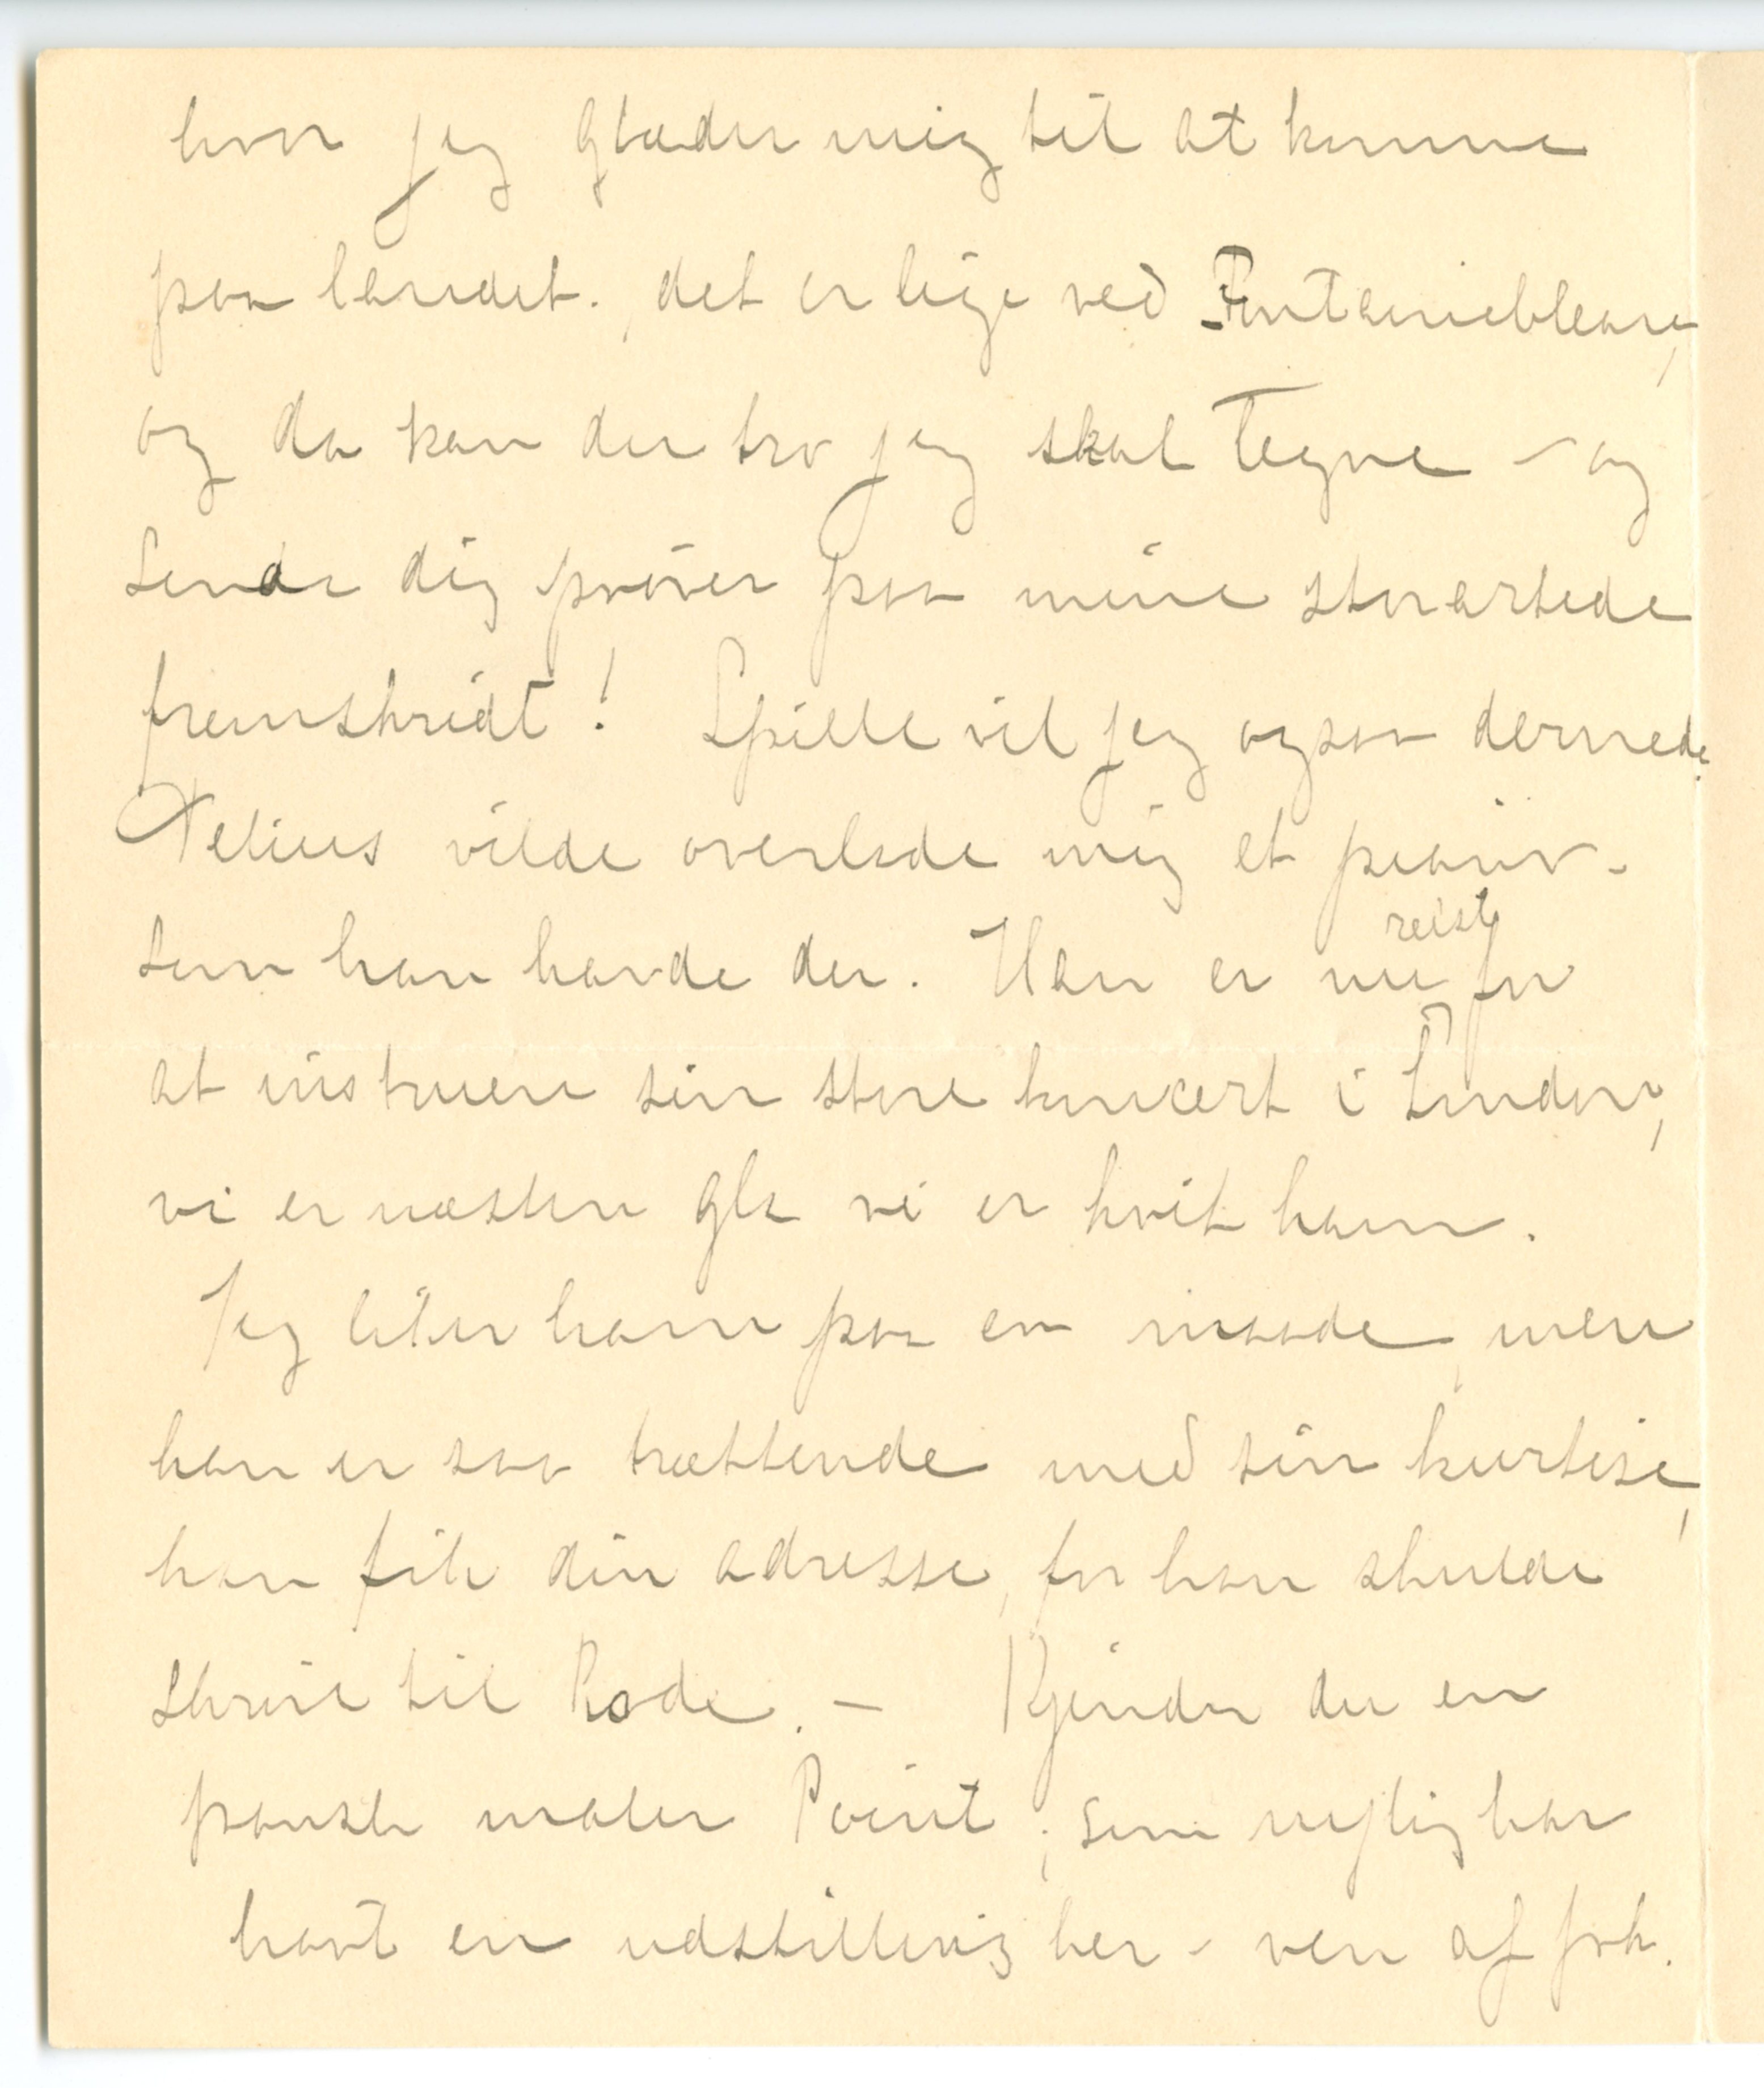 hvor jeg glæder mig til at komme
paa landet. det er lige ved Fontainebleau,
og da kan du tro jeg skal tegne – og
sende dig prøver paa mine storartede
fremskridt! Spille vil jeg ogsaa dernede.
Delius vilde overlade mig et piano –
som han havde der. Han er nu reist for
at instruere sin store koncert i London,
vi er næsten gla vi er kvit ham.
Jeg liker ham paa en maade, men
han er saa trættende med sin kurtise,
han fik din adresse, for han skulde
skrive til Rode. – Kjender du en
fransk maler Point, som nylig har
havt en udstilling her – ven af frk.